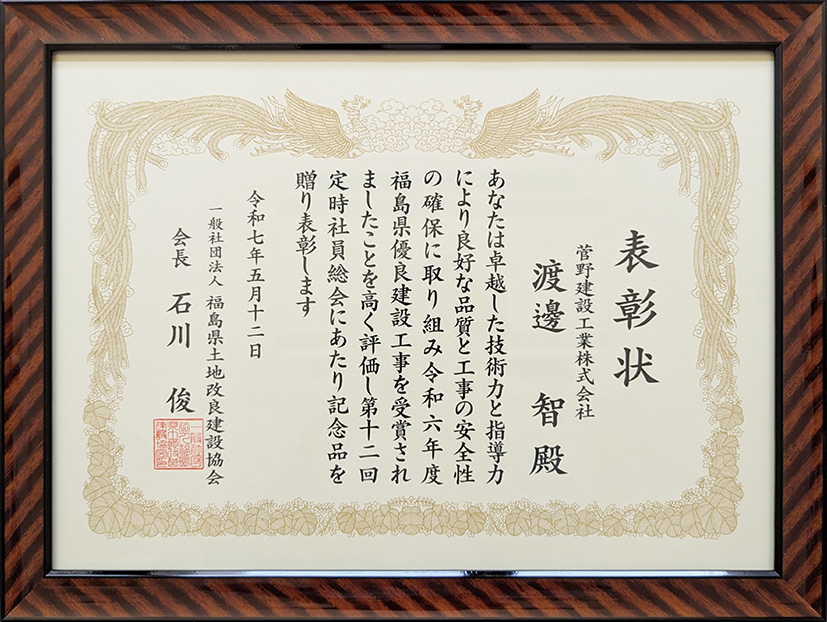 表彰状
菅野建設工業株式会社
渡邊 智 殿
あなたは卓越した技術力と指導力
により良好な品質と工事の安全性
の確保に取り組み令和六年度
福島県優良建設工事を受賞され
ましたことを高く評価し第十二回
定時社員総会にあたり記念品を
贈り表彰します
令和七年五月十二日
一般社団法人 福島県土地改良建設協会
会長 石川 俊